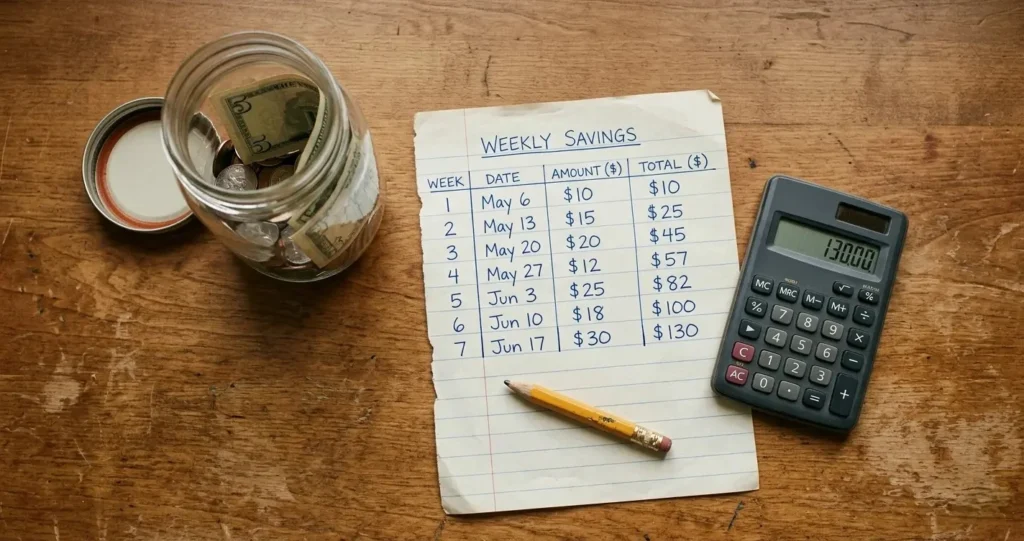 WEEKLY SAVINGS
WEEK DATE AMOUNT ($) TOTAL ($)
1 May 6 $10 $10
2 May 13 $15 $25
3 May 20 $20 $45
4 May 27 $12 $57
5 Jun 3 $25 $82
6 Jun 10 $18 $100
7 Jun 17 $30 $130
5
5
130.00
MC MRC M- M+ √ %
% 7 8 9 ÷
▶ 4 5 6 ×
C 1 2 3 −
AC 0 . = +